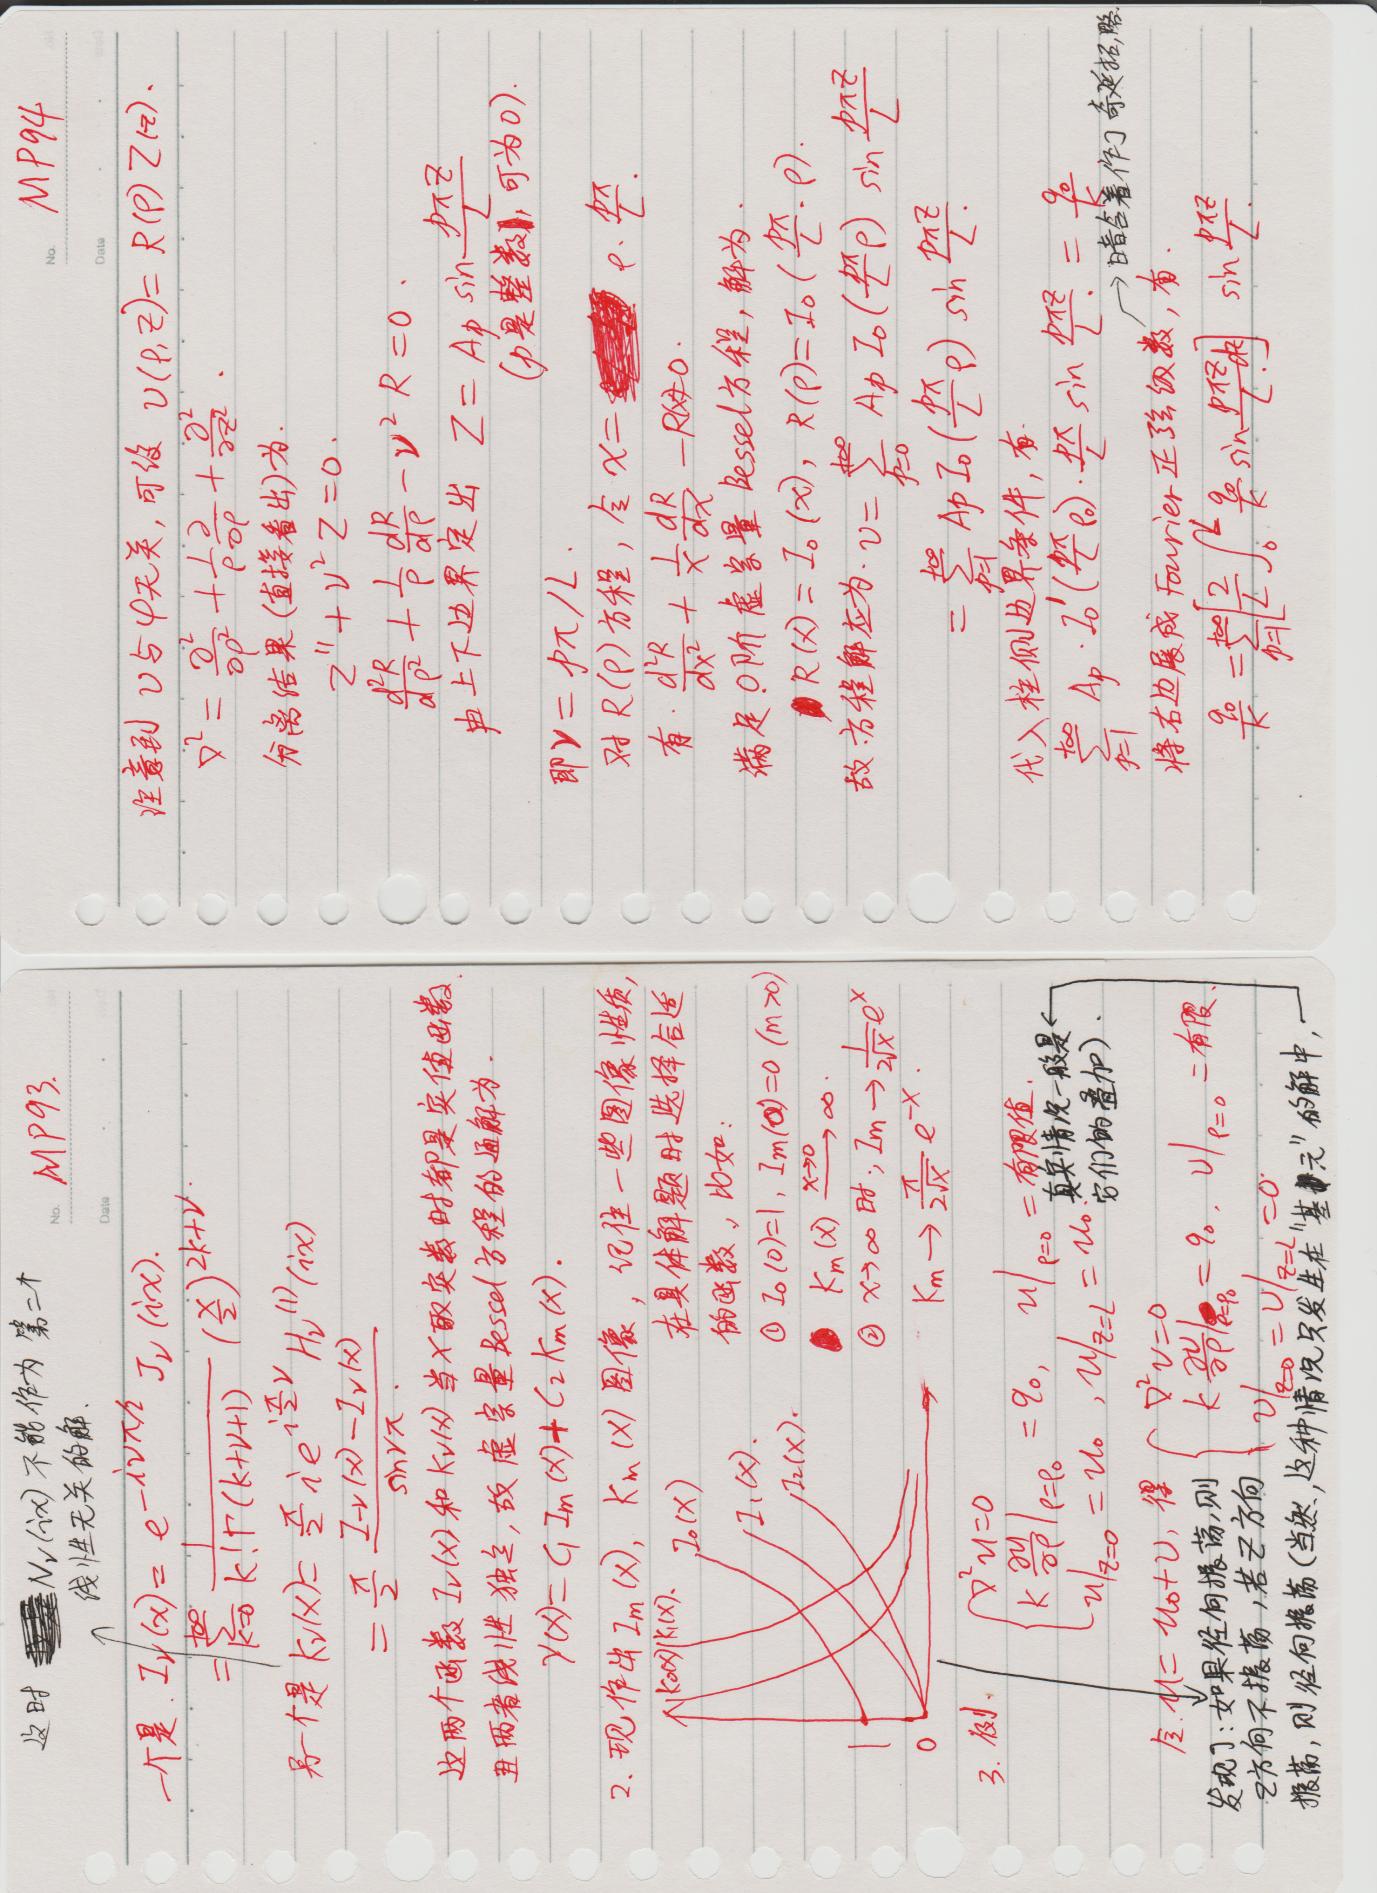 这时 Nν(ix) 不能作为第二个
线性无关的解.
No. MP93.
Date
一个是. Iν(x) = e^{-iνπ/2} Jν(ix).
= Σ_{k=0}^{+∞} 1/(k!Γ(k+ν+1)) (x/2)^{2k+ν}.
另一个是 Kν(x) = π/2 i e^{iπ/2 ν} Hν^{(1)}(ix)
= π/2 (I-ν(x) - Iν(x))/sinνπ.
这两个函数 Iν(x) 和 Kν(x) 当 x 取实数时都是实值函数.
且两者线性独立, 故虚宗量Bessel方程的通解为.
y(x) = C₁ Im(x) + C₂ Km(x).
2. 现作出 Im(x), Km(x) 图像, 记住一些图像性质,
在具体解题时选择合适
的函数, 比如:
① I₀(0)=1, Im(0)=0 (m>0)
Km(x) →^{x→0} ∞.
② x→∞ 时, Im → 1/(2√x) e^x
Km → π/(2√x) e^{-x}.
K₀(x) K₁(x).
I₀(x)
I₁(x).
I₂(x).
1
0
3. 例.
∇²u=0
k ∂u/∂ρ|ρ=ρ₀ = q₀, u|ρ=0 = 有限值.
u|z=0 = u₀, u|z=L = u₀.
真实情况一般是
它们的叠加).
令 u = u₀+v, 得
∇²v=0
k ∂v/∂ρ|ρ=ρ₀ = q₀, v|ρ=0 = 有限.
v|z=0 = v|z=L = 0.
发现了: 如果径向振荡, 则
z方向不振荡, 若z方向
振荡, 则径向振荡(当然, 这种情况只发生在"基元"的解中,
No. MP94
Date
注意到 v与φ无关, 可设 v(ρ,z) = R(ρ) Z(z).
∇² = ∂²/∂ρ² + 1/ρ ∂/∂ρ + ∂²/∂z².
分离结果(直接看出)为.
Z'' + ν² Z = 0.
d²R/dρ² + 1/ρ dR/dρ - ν² R = 0.
由上下边界定出 Z = Ap sin pπz/L
(p是整数, 可为0).
即ν = pπ/L.
对 R(ρ) 方程, 令 x = ρ·pπ/L.
有. d²R/dx² + 1/x dR/dx - R(x)=0.
满足0阶虚宗量Bessel方程, 解为.
R(x) = I₀(x), R(ρ) = I₀(pπ/L·ρ).
故方程解应为. v = Σ_{p=0}^{+∞} Ap I₀(pπ/L ρ) sin pπz/L
= Σ_{p=1}^{+∞} Ap I₀(pπ/L ρ) sin pπz/L.
代入柱侧边界条件, 有.
Σ_{p=1}^{+∞} Ap · I₀'(pπ/L ρ₀) · pπ/L sin pπz/L. = q₀/k
暗含着作了奇延拓, 略.
将右边展成Fourier正弦级数, 有.
q₀/k = Σ_{p=1}^{+∞} [2/L ∫₀^L q₀/k sin pπz/L dz] sin pπz/L.